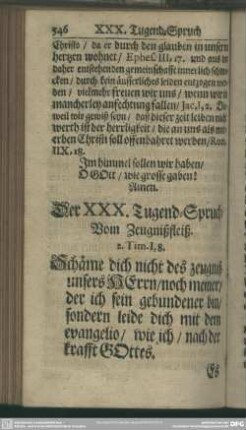 546 XXX. Tugend-Spruch
Christo / da er durch den glauben in unsern
hertzen wohnet / Ephes. III, 17. und aus
daher entstehenden gemeinschafft innerlich schme-
cken / durch kein äusserliches leiden entzogen
den / vielmehr freuen wir uns / wenn wir
mancherley anfechtung fallen / Jac. I, 2.
weil wir gewiß seyn / daß dieser zeit leiden nit
werth ist der herrligkeit / die an uns als
erben Christi soll offenbahret werden / Rom.
IIX. 18.
Im himmel sollen wir haben /
O GOtt / wie grosse gaben!
Amen.
Der XXX. Tugend-Spruch
Vom Zeugnißfleiß.
2. Tim. I, 8.
Schäme dich nicht des zeugniß
unsers HErrn / noch meiner /
der ich sein gebundener bin /
sondern leide dich mit dem
evangelio / wie ich / nach der
krafft GOttes.
Es